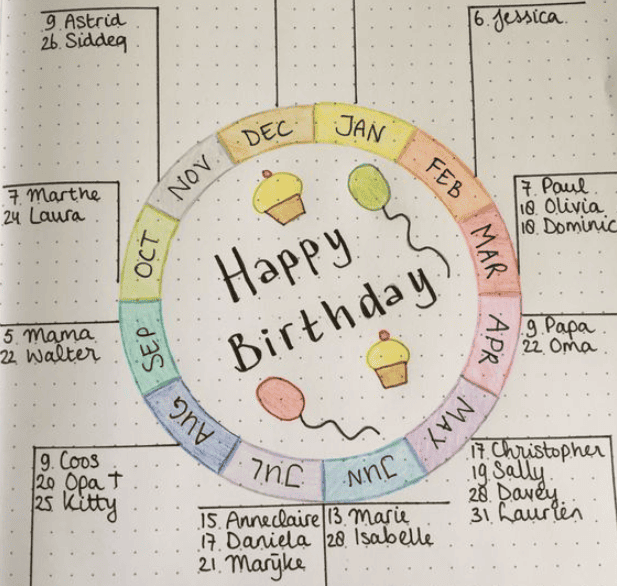 9. Astrid
26. Siddeq
6. Jessica
DEC
JAN
NOV
FEB
7. Marthe
24 Laura
7. Paul
18. Olivia
18. Dominic
OCT
MAR
Happy
Birthday
5. Mama
22 Walter
SEP
APR
9. Papa
22. Oma
AUG
MAY
JUL
JUN
9. Coos
20 Opa †
25 Kitty
17. Christopher
19 Sally
28. Davey
31 Laurien
15. Anneclaire
17. Daniela
21. Marijke
13. Marie
28 Isabelle